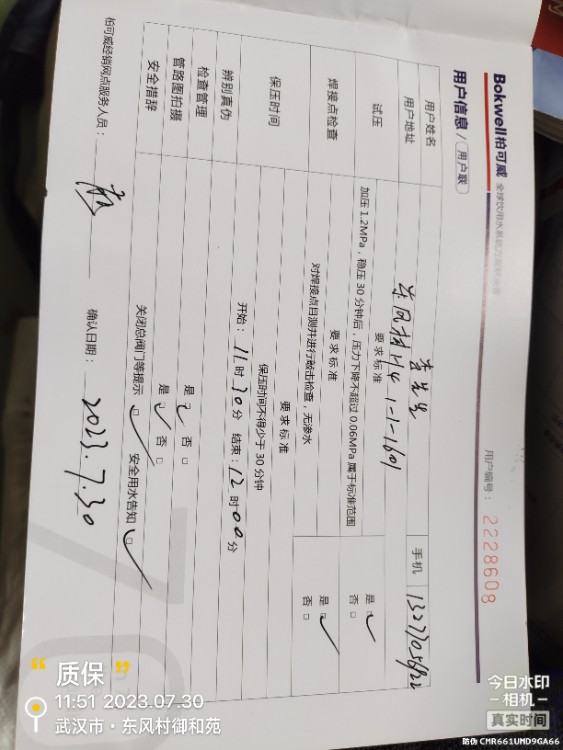 Bokwell柏可威
用户信息 / 用户联
用户编号: 2228608
用户姓名 李先生 手机
用户地址 东风村H4 1-1-1601
试压 要求标准
加压 1.2MPa，稳压 30 分钟后，压力下降不超过 0.06MPa 属于标准范围
是 ☑ 否 □
焊接点检查 要求标准
对焊接点目测并进行敲击检查，无渗水
是 ☑ 否 □
保压时间 要求标准
保压时间不得少于 30 分钟
开始：11 时 30 分 结束：12 时 00 分
辨别真伪 是 ☑ 否 □
检查管理 是 ☑ 否 □
管路图拍摄
安全措辞 关闭总阀门等提示 ☑ 安全用水告知 ☑
柏可威经销网点服务人员：
确认日期：2023.7.30
质保
11:51 2023.07.30
武汉市·东风村御和苑
今日水印
相机
真实时间
防伪 CMR661UMD9GA66